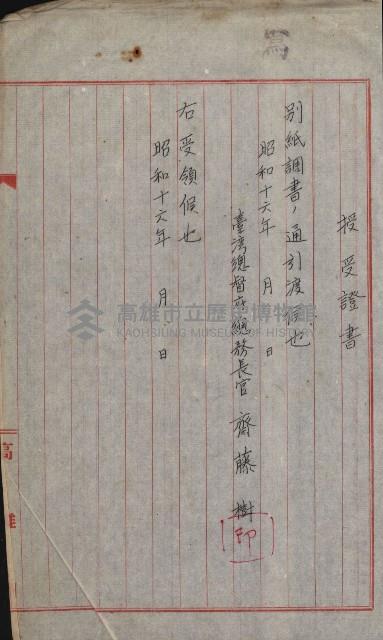 寫
授受證書
別紙調書ノ通引渡候也
昭和十六年 月 日
臺湾總督府總務長官 齋藤樹
印
右受領候也
昭和十六年 月 日
高雄市立歷史博物館
KAOHSIUNG MUSEUM OF HISTORY
高雄